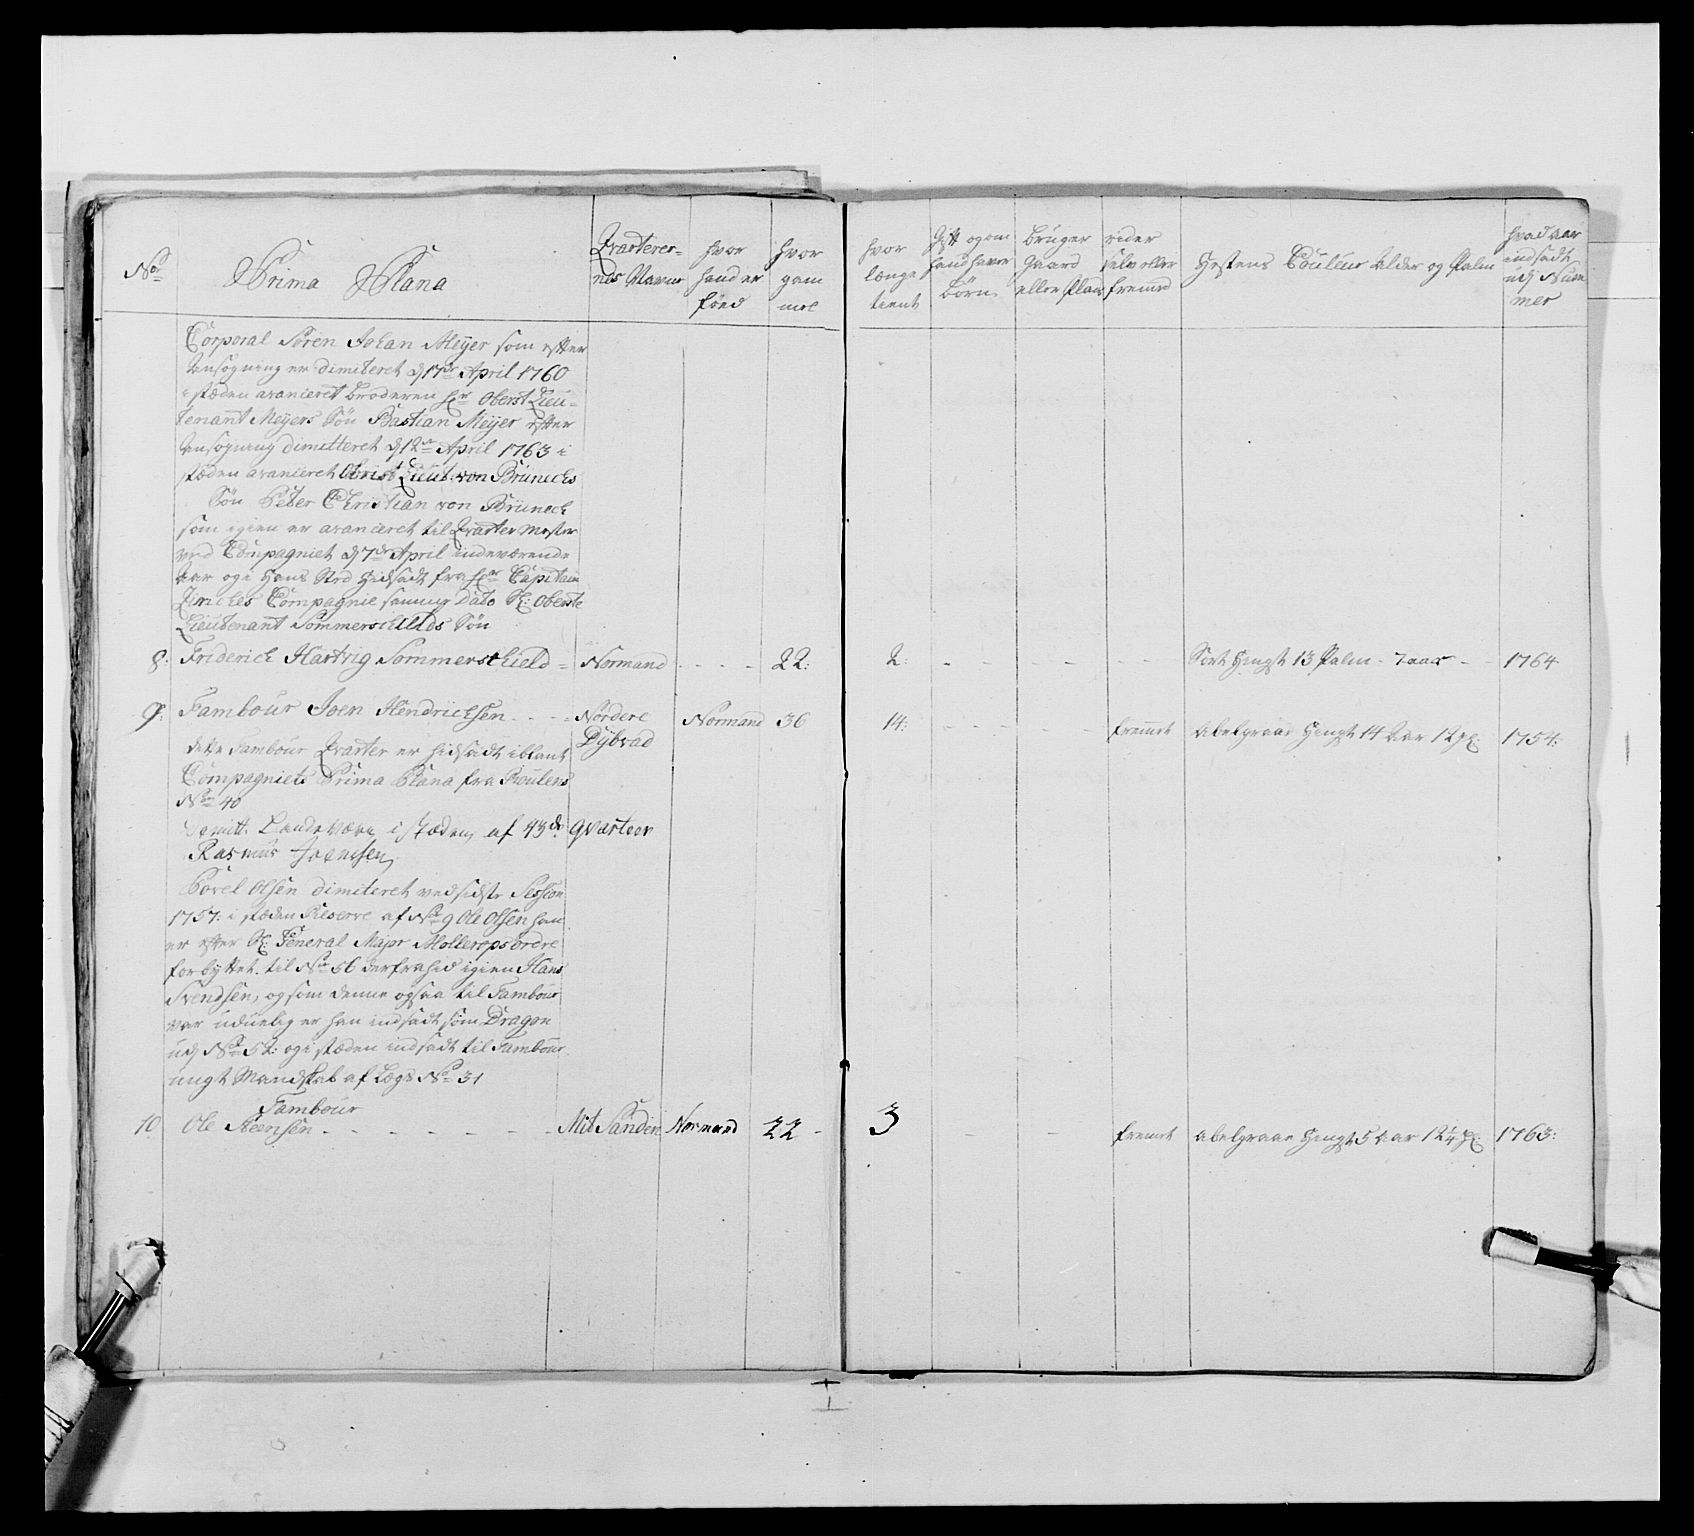 No
Prima Plana
Qvarterer-
nes Navne
hvor
hand er
föed
hvor
gam
mel
hvor
længe
tient
Gift og om
hand haver
börn
bruger
Gaard
eller Plads
rider
selv eller
fremed
Hestens Couleur Alder og Palm
hvad aar
indsadt
udj Num
mer
Corporal Sören Johan Meÿer som efter
Ansögning er dimiteret d 17de April 1760
i stæden avanceret broderen Hr Oberst Lieu-
tenannt Meÿers Sön Bastian Meÿer efter
Ansögning dimitteret d 12te April 1763 i
stæden avanceret Obrist Lieut: von Brünechs
Sön Peter Christian von Brünech
som igien er avanceret til Qvarter Mester
ved Compagniet d 7de April indeværende
Aar og i Hans Sted hidsadt fra Hr Capitain
Compagnie samme dato Hr: Oberste
Lieutenannt Sommerschields Sön
8: Friderich Hartvig Sommerschield = Normand - - - - 22: 2: - - - - - Sort Hingst 13 Palm - 7 aar - - 1764
9: Tambour Joen Hendrichsen - - - = Nordere Normand 36 14: - - - - - fremet abelgraae Hingst 14 Aar 12 pl: 1754:
Dÿbvad
dette Tambour Qvarter er hidsadt iblant
Compagniets Prima Plana fra Roulens
No 40
Demitt. Landeværn i stæden af 43de qvarteer
Rasmus Joenssen
Povel Olsen dimiteret ved sidste Session
1757: i stæden Reserve af No 9 Ole Olsen han
er efter Hr: General Major Mollerops ordre
forbÿttet til No 56 derfra hid igien Hans
Svendsen, og som denne ogsaa til Tambour
var uduelig er han indsadt som Dragon
udj No 52: og i stæden indsadt til Tambour
ungt Mandskab af Lægs No 31
Tambour
10 Ole Steensen - - - - - - - Mit Sanden Normand 22 - 3 - - - fremet abelgraae Hingst 5 Aar 12 1/4 pl: 1763: